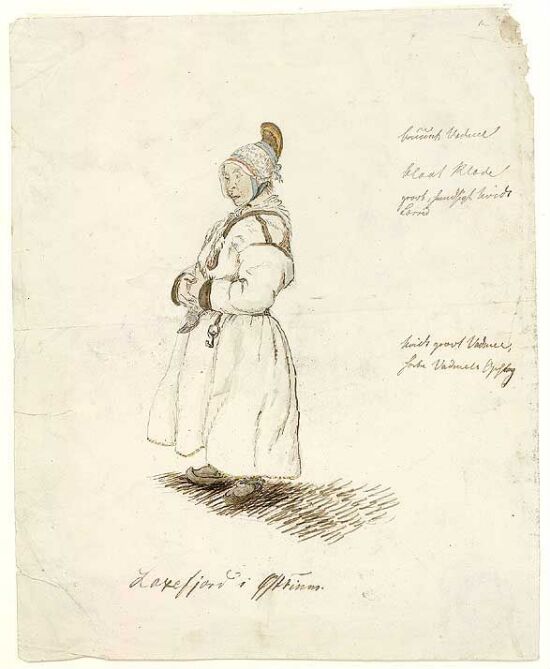 bruunt Vadmel
blaat Klæde
grovt,
Lerred
hvidt grovt Vadmel,
Vadmels Opslag
Laxefjord i Østfinm.